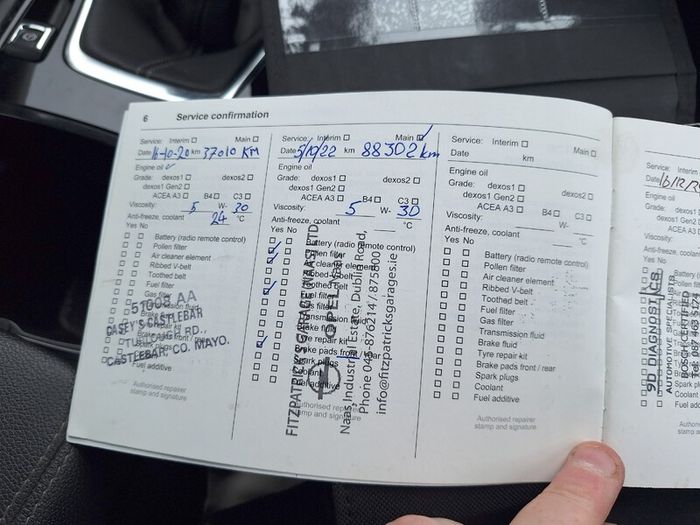 6 Service confirmation
Service: Interim Main
Date 16-10-20 km 37010 KM
Engine oil
Grade: dexos1 dexos2
dexos1 Gen2
ACEA A3 B4 C3
Viscosity: 5 W- 30
Anti-freeze, coolant 24 °C
Yes No
Battery (radio remote control)
Pollen filter
Air cleaner element
Ribbed V-belt
Toothed belt
Fuel filter
51009 AA
CASEY'S CASTLEBAR
TURLOUGH RD.,
CASTLEBAR, CO. MAYO.
Fuel additive
Authorised repairer
stamp and signature
Service: Interim Main
Date 5/10/22 km 88302 km
Engine oil
Grade: dexos1 dexos2
dexos1 Gen2
ACEA A3 B4 C3
Viscosity: 5 W- 30
Anti-freeze, coolant °C
Yes No
Battery (radio remote control)
Pollen filter
Air cleaner element
Ribbed V-belt
Toothed belt
Fuel filter
Gas filter
Transmission fluid
Brake fluid
Tyre repair kit
Brake pads front / rear
Spark plugs
Coolant
Fuel additive
Authorised repairer
stamp and signature
FITZPATRICKS GARAGE (NAAS) LTD
OPEL
Naas Industrial Estate, Dublin Road,
Phone 045-876214 / 875800
info@fitzpatricksgarages.ie
Service: Interim Main
Date km
Engine oil
Grade: dexos1 dexos2
dexos1 Gen2
ACEA A3 B4 C3
Viscosity: W-
Anti-freeze, coolant °C
Yes No
Battery (radio remote control)
Pollen filter
Air cleaner element
Ribbed V-belt
Toothed belt
Fuel filter
Gas filter
Transmission fluid
Brake fluid
Tyre repair kit
Brake pads front / rear
Spark plugs
Coolant
Fuel additive
Authorised repairer
stamp and signature
Service: Interim
Date
Engine oil
Grade: dexos1
dexos1
ACEA
Viscosity:
Anti-freeze, coolant
Yes No
9D DIAGNOSTICS
AUTOMOTIVE SPECIALISTS
BOSCH CERTIFIED
Fuel add